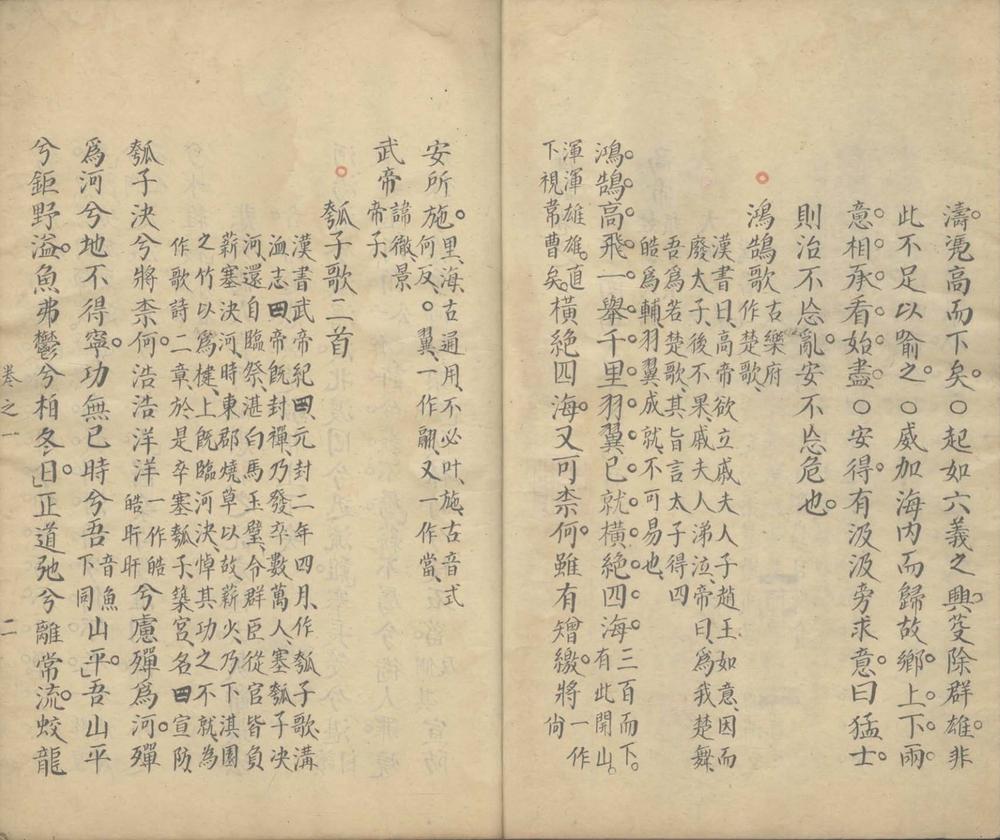 濤凴高而下矣。○起如六義之興芟除群雄。非
此不足以喻之。○威加海内而歸故鄉。上下兩
意。相承看始盡。○安得有汲汲旁求意曰猛士
則治不忘亂。安不忘危也。
鴻鵠歌 古樂府作楚歌、
漢書曰、高帝欲立戚夫人子趙王如意、因而
廢太子、後不果、戚夫人涕泣、帝曰、為我楚舞、
吾為若楚歌、其旨言太子得四
皓為輔、羽翼成就、不可易也、
鴻鵠高飛一舉千里羽翼已就横絶四海 三百而下。有此開山。
渾渾雄雄。直下視常曹矣。横絶四海又可柰何。雖有矰繳。將 一作尙
安所施。 里、海、古通用、不必叶、施、古音式何反、○翼、一作翮、又一作當、
武帝 諱徹、景帝子、
瓠子歌二首
漢書武帝紀曰、元封二年四月、作瓠子歌、溝
洫志曰、帝既封禪、乃發卒數萬人、塞瓠子決
河、還自臨祭、湛白馬玉璧、令群臣從官皆負
薪塞決河、時東郡燒草以故薪火、乃下淇園
之竹以為楗、上既臨河決、悼其功之不就、為
作歌詩二章、於是卒塞瓠子、築宮、名曰宣防、
瓠子決兮將柰何。浩浩洋洋 一作皓皓旰旰 兮慮殫為河。殫
為河兮地不得寧。功無已時兮吾 音魚下同 山平。」吾山平
兮鉅野溢。魚弗鬱兮柏冬日。」正道弛兮離常流。蛟龍
卷之一
二